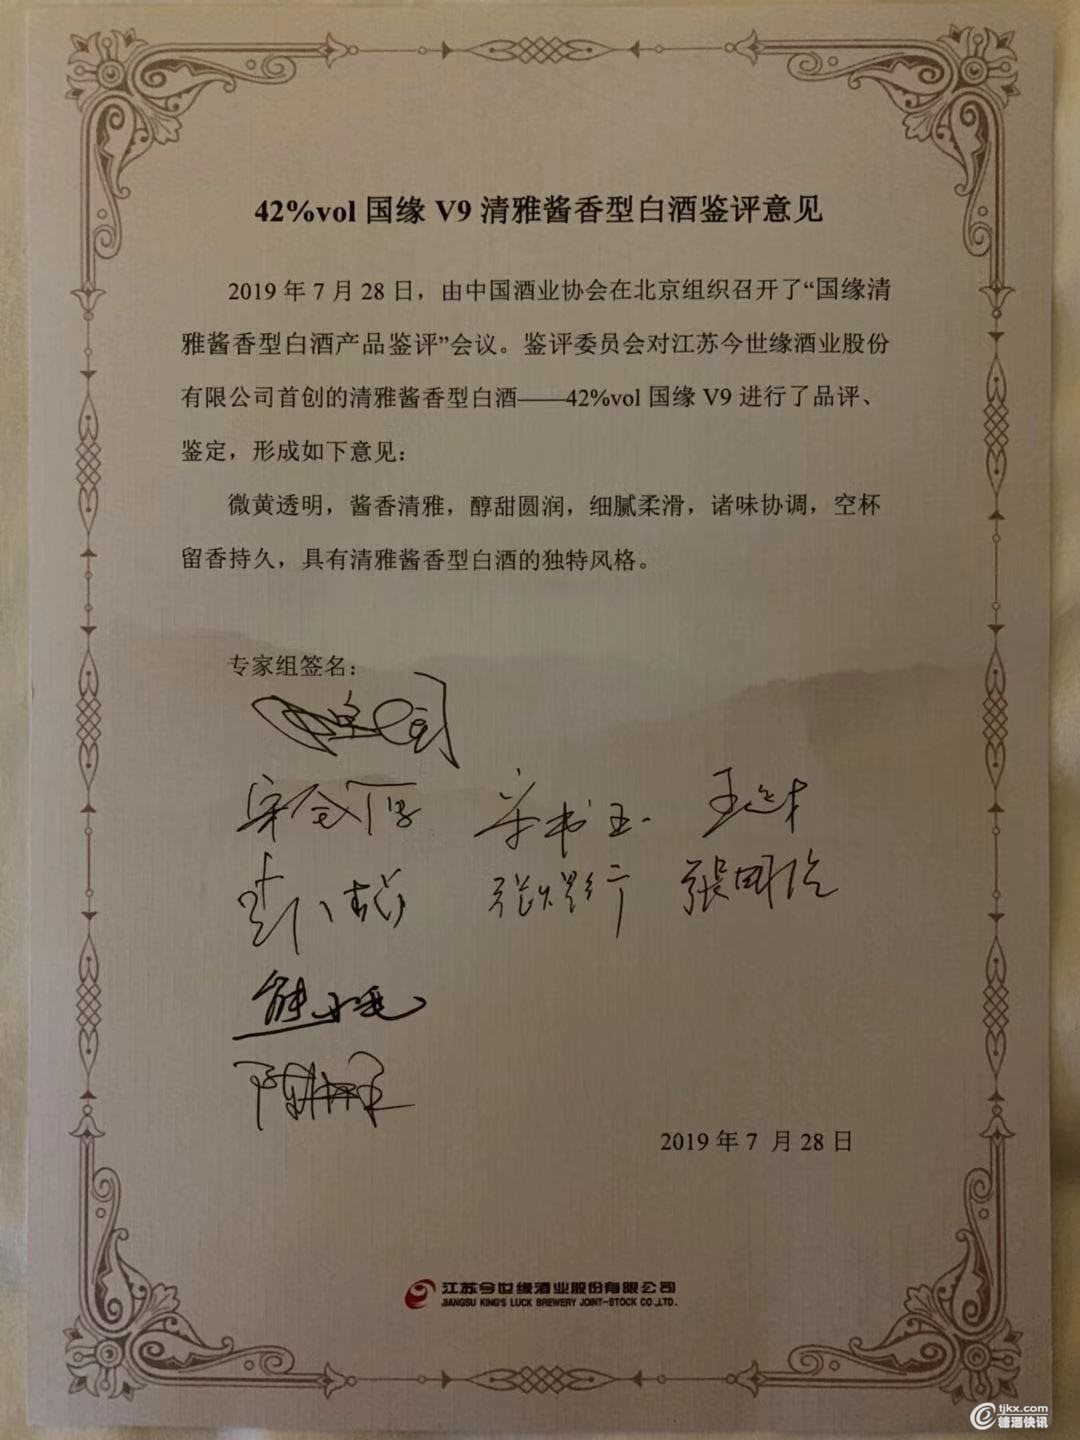 42%vol 国缘 V9 清雅酱香型白酒鉴评意见
2019 年 7 月 28 日，由中国酒业协会在北京组织召开了“国缘清
雅酱香型白酒产品鉴评”会议。鉴评委员会对江苏今世缘酒业股份
有限公司首创的清雅酱香型白酒——42%vol 国缘 V9 进行了品评、
鉴定，形成如下意见：
微黄透明，酱香清雅，醇甜圆润，细腻柔滑，诸味协调，空杯
留香持久，具有清雅酱香型白酒的独特风格。
专家组签名：
宋书玉
2019 年 7 月 28 日
江苏今世缘酒业股份有限公司
JIANGSU KING'S LUCK BREWERY JOINT-STOCK CO.,LTD.
tjkx.com
糖酒快讯